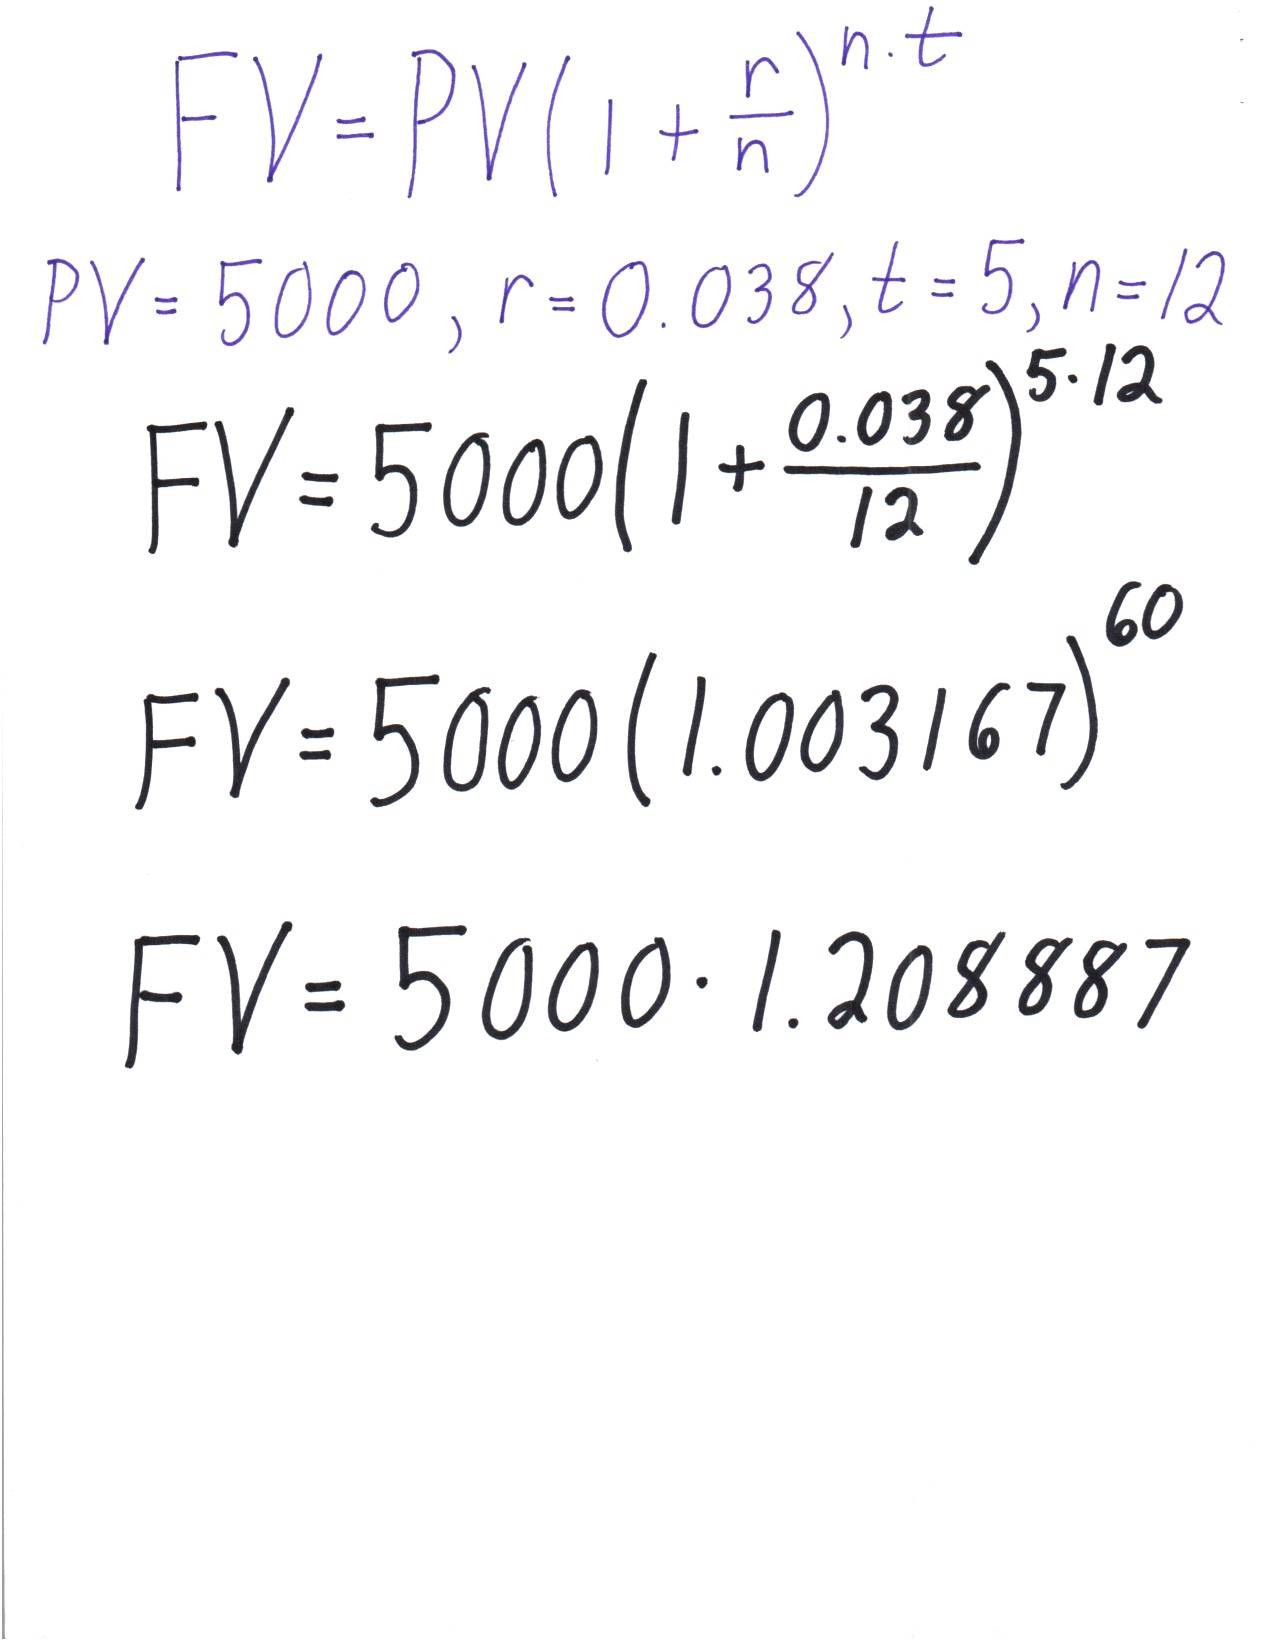 FV = PV(1 + r/n)^n·t
PV = 5000, r = 0.038, t = 5, n = 12
FV = 5000(1 + 0.038/12)^5·12
FV = 5000(1.003167)^60
FV = 5000 · 1.208887